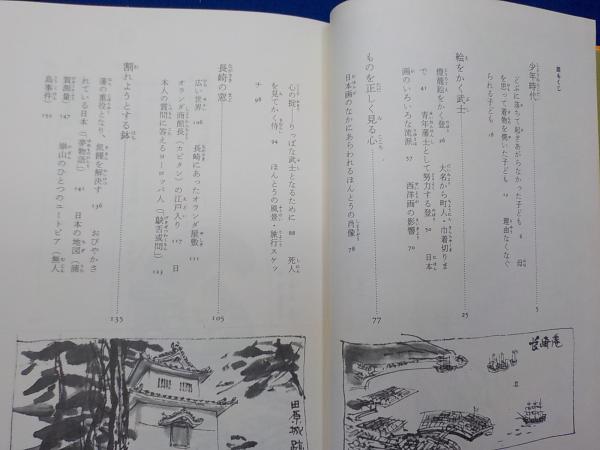 ■もくじ
少年時代……5
どぶに落ちて起きあがらなかった子ども 6 母
を思って着物を働いた子ども 12 理由なくなぐ
られる子ども 18
絵をかく武士……25
燈籠絵をかく登 26 大名から町人・巾着切りま
で 41 青年藩士として努力する登 50 日本
画のいろいろな流派 57 西洋画の影響 70
ものを正しく見る心……77
日本画のなかにあらわれるほんとうの肖像 78
心の掟――りっぱな武士となるために 88 死人
を見てかく侍 94 ほんとうの風景・旅行スケッ
チ 98
長崎の窓……105
広い世界 106 長崎にあったオランダ屋敷 111
オランダ商館長(カピタン)の江戸入り 117 日
本人の質問に答えるヨーロッパ人(「鴃舌或問」)
123
割れようとする鉢……135
藩の重役となり、飢饉を解決す 136 おびやかさ
れている日本(「夢物語」) 141 日本の地図(諸
賀測量) 147 崋山のひとつのユートピア(無人
島事件) 150
田原城跡
長崎港